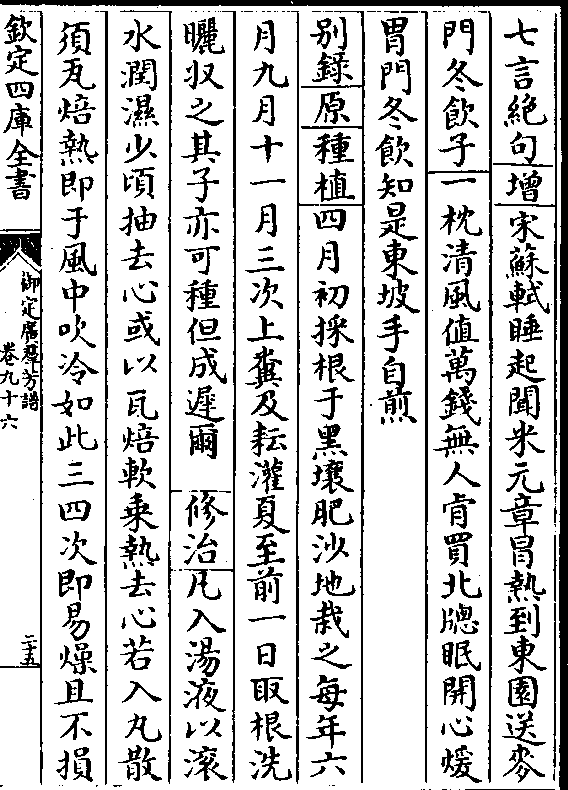 七言絶句增宋蘇軾睡起聞米元章冒熱到東園送麥
門冬飲子一枕清風值萬錢無人肯買北牕眠開心煖
胃門冬飲知是東坡手自煎
别錄原種植四月初採根于黑壤肥沙地栽之每年六
月九月十一月三次上糞及耘灌夏至前一日取根洗
曬收之其子亦可種但成遲爾修治凡入湯液以滚
水潤濕少頃抽去心或以瓦焙軟乘熱去心若入丸散
須瓦焙熱即于風中吹冷如此三四次即易燥且不損
欽定四庫全書
御定廣羣芳譜
卷九十六
二十五